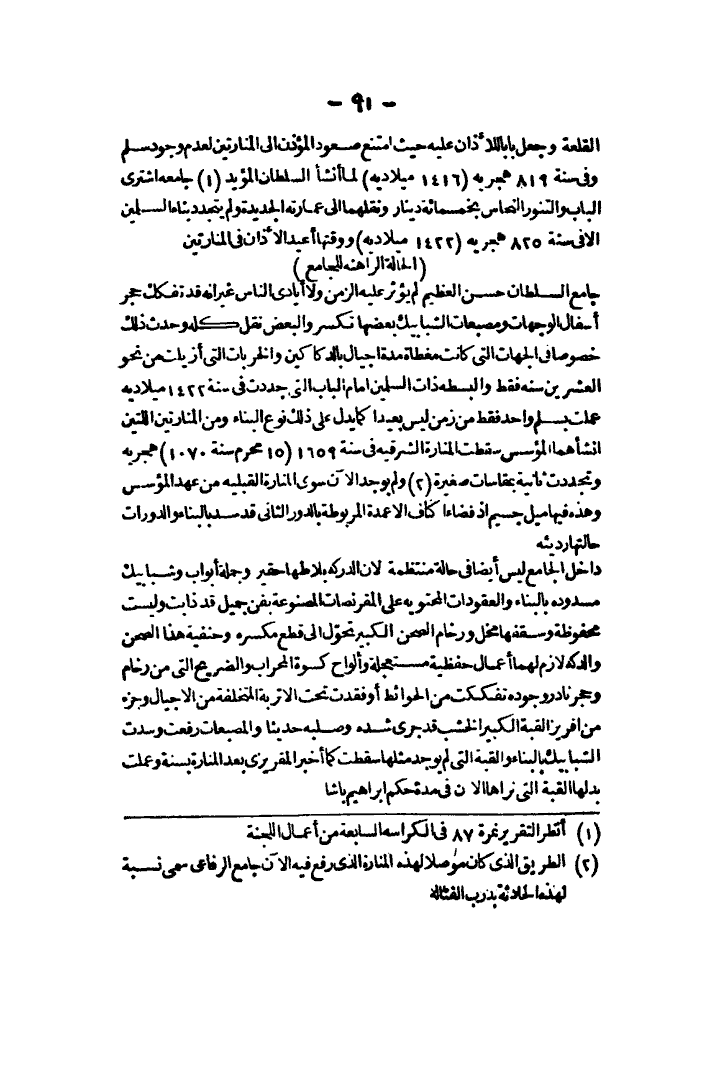 - ٩١ -
القلعة وجعل بابا للأذان عليه حيث امتنع صعود المؤذن الى المنارتين لعدم وجود سلم
وفى سنة ٨١٩ هجريه (١٤١٦ ميلاديه) لما أنشأ السلطان المؤيد (١) جامعه اشترى
الباب والتنور النحاس بخمسمائة دينار ونقلهما الى عمارته الجديدة ولم يتجدد بناء السلمين
الا فى سنة ٨٢٥ هجريه (١٤٢٢ ميلاديه) ووقتها أعيد الأذان فى المنارتين
(الحالة الراهنه للجامع)
جامع السلطان حسن العظيم لم يؤثر عليه الزمن ولا أيادى الناس غير انه قد تفكك حجر
أسفال الوجهات ومصبعات الشبابيك بعضها تكسر والبعض نقل كله وحدث ذلك
خصوصا فى الجهات التى كانت مغطاة مدة اجيال بالدكاكين والخربات التى أزيلت من نحو
العشرين سنه فقط والبسطه ذات السلمين امام الباب التى جددت فى سنة ١٤٢٢ ميلاديه
عملت بسلم واحد فقط من زمن ليس بعيدا كما يدل على ذلك نوع البناء ومن المنارتين اللتين
انشأهما المؤسس سقطت المنارة الشرقيه فى سنة ١٦٥٩ (١٥ محرم سنة ١٠٧٠) هجريه
وتجددت ثانية بمقاسات صغيرة (٢) ولم يوجد الآن سوى المنارة القبليه من عهد المؤسس
وهذه فيها ميل جسيم اذ فضاءا كناف الاعمدة المربوطة بالدور الثانى قد سد بالبناء والدورات
حالتها رديئه
داخل الجامع ليس أيضا فى حالة منتظمة لان الدركه بلاطها حقير وجملة أبواب وشبابيك
مسدوده بالبناء والعقودات المحتويه على المقرنصات المصنوعة بفن جميل قد ذابت وليست
محفوظة وسقفها مخل ورخام الصحن الكبير تحول الى قطع مكسره وحنفية هذا الصحن
والدكه لازم لهما أعمال حفظية مستعجلة وألواح كسوة المحراب والضريح التى من رخام
وحجر نادر وجوده تفككت من الحوائط أو فقدت تحت الاتربة المتخلفة من الاجيال وجزء
من افريز القبة الكبير الخشب قد جرى شده وصلبه حديثا والمصبعات رفعت وسدت
الشبابيك بالبناء والقبة التى لم يوجد مثلها سقطت كما أخبر المقريزى بعد المنارة بسنة وعملت
بدلها القبة التى نراها الان فى مدة حكم ابراهيم باشا
(١) أنظر التقرير نمرة ٨٧ فى الكراسه السابعة من أعمال اللجنة
(٢) الطريق الذى كان موصلا لهذه المنارة الذى رفع فيه الآن جامع الرفاعى سمى نسبة
لهذه الحادثة بدرب القتاله